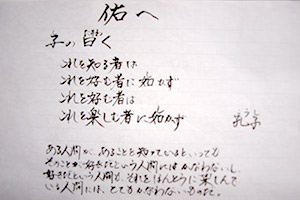 佑へ
子の曰く
これを知る者は
これを好む者に如かず
これを好む者は
これを楽しむ者に如かず
孔子
こうし
ある人間が、あることを知っているといっても
そのことが好きだという人間にはかなわないし、
好きだという人間も、それをほんとうに楽しんで
いる人間には、とてもかなわないものだ。